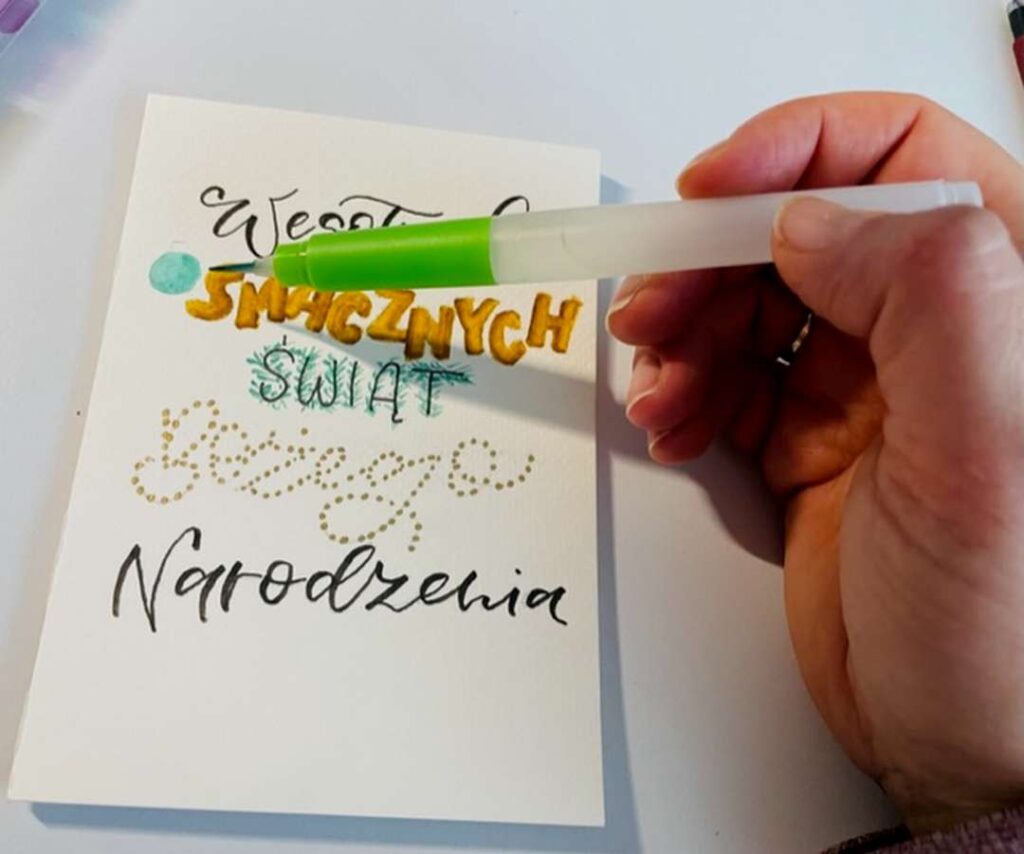 SMACZNYCH
ŚWIĄT
Bożego
Narodzenia